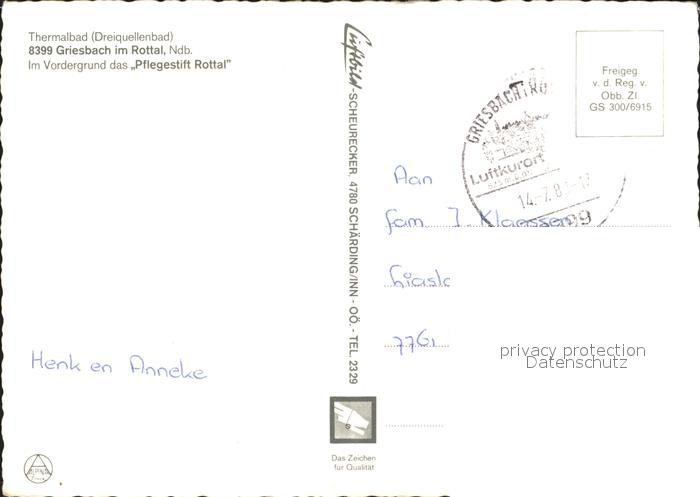 Thermalbad (Dreiquellenbad)
8399 Griesbach im Rottal, Ndb.
Im Vordergrund das „Pflegestift Rottal"
Henk en Anneke
Luftbild-SCHEURECKER, 4780 SCHÄRDING/INN - OÖ. - TEL. 2329
Das Zeichen
für Qualität
Freigeg.
v. d. Reg. v.
Obb. Zl.
GS 300/6915
GRIESBACH i RO
Luftkurort
14.-7.8
99
Aan
fam J Klaassen
776
privacy protection
Datenschutz